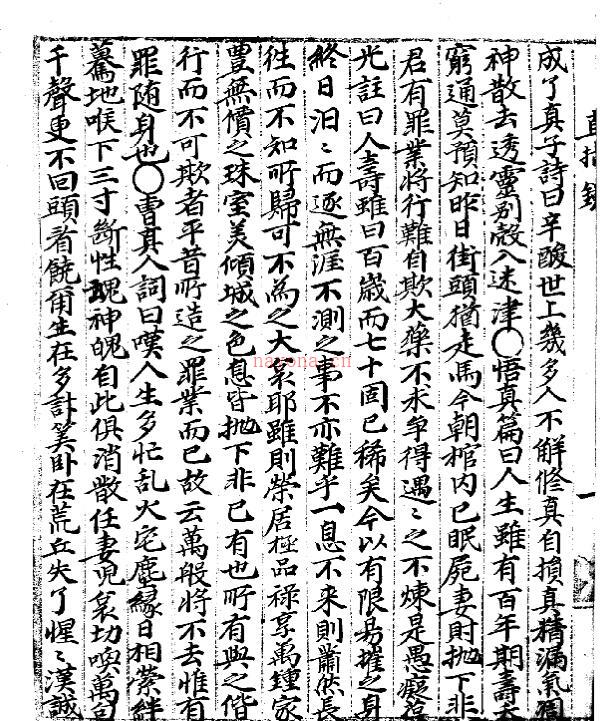 直指
一
成了真子詩曰辛酸世上幾多人不解修真自損真精漏氣
神散去透靈別殼入迷津〇悟真篇曰人生雖有百年期壽夭
窮通莫預知昨日街頭猶走馬今朝棺内已眠屍妻財抛下非
君有罪業將行難自欺大藥不求爭得遇〻之不煉是愚癡葆
光註曰人壽雖曰百歲而七十固已稀矣今以有限易摧之身
終日汨〻而逐無涯不測之事不亦難乎一息不来則蕭然長
徃而不知所歸可不為之大哀耶雖則榮居極品禄享萬鍾家
豐無價之珠室美傾城之色息皆抛下非已有也所有與之偕
行而不可欺者平昔所造之罪業而已故云萬般將不去惟有
罪随身也〇曹真人詞曰嘆人生多忙乱火宅塵緣日相縈絆
驀地喉下三寸斷性魂神魄自此俱消散任妻兒哀切喚萬句
千聲更不回頭看饒爾生在多計筭卧在荒丘失了惺〻漢誠
nayona.cn